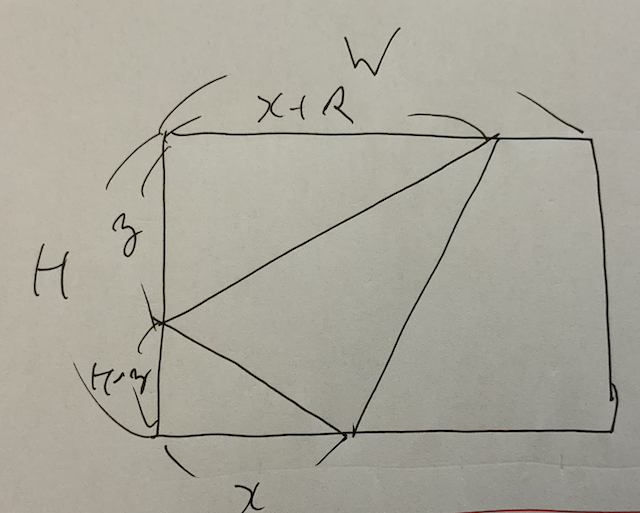 W
x+R
y
H
H-y
x